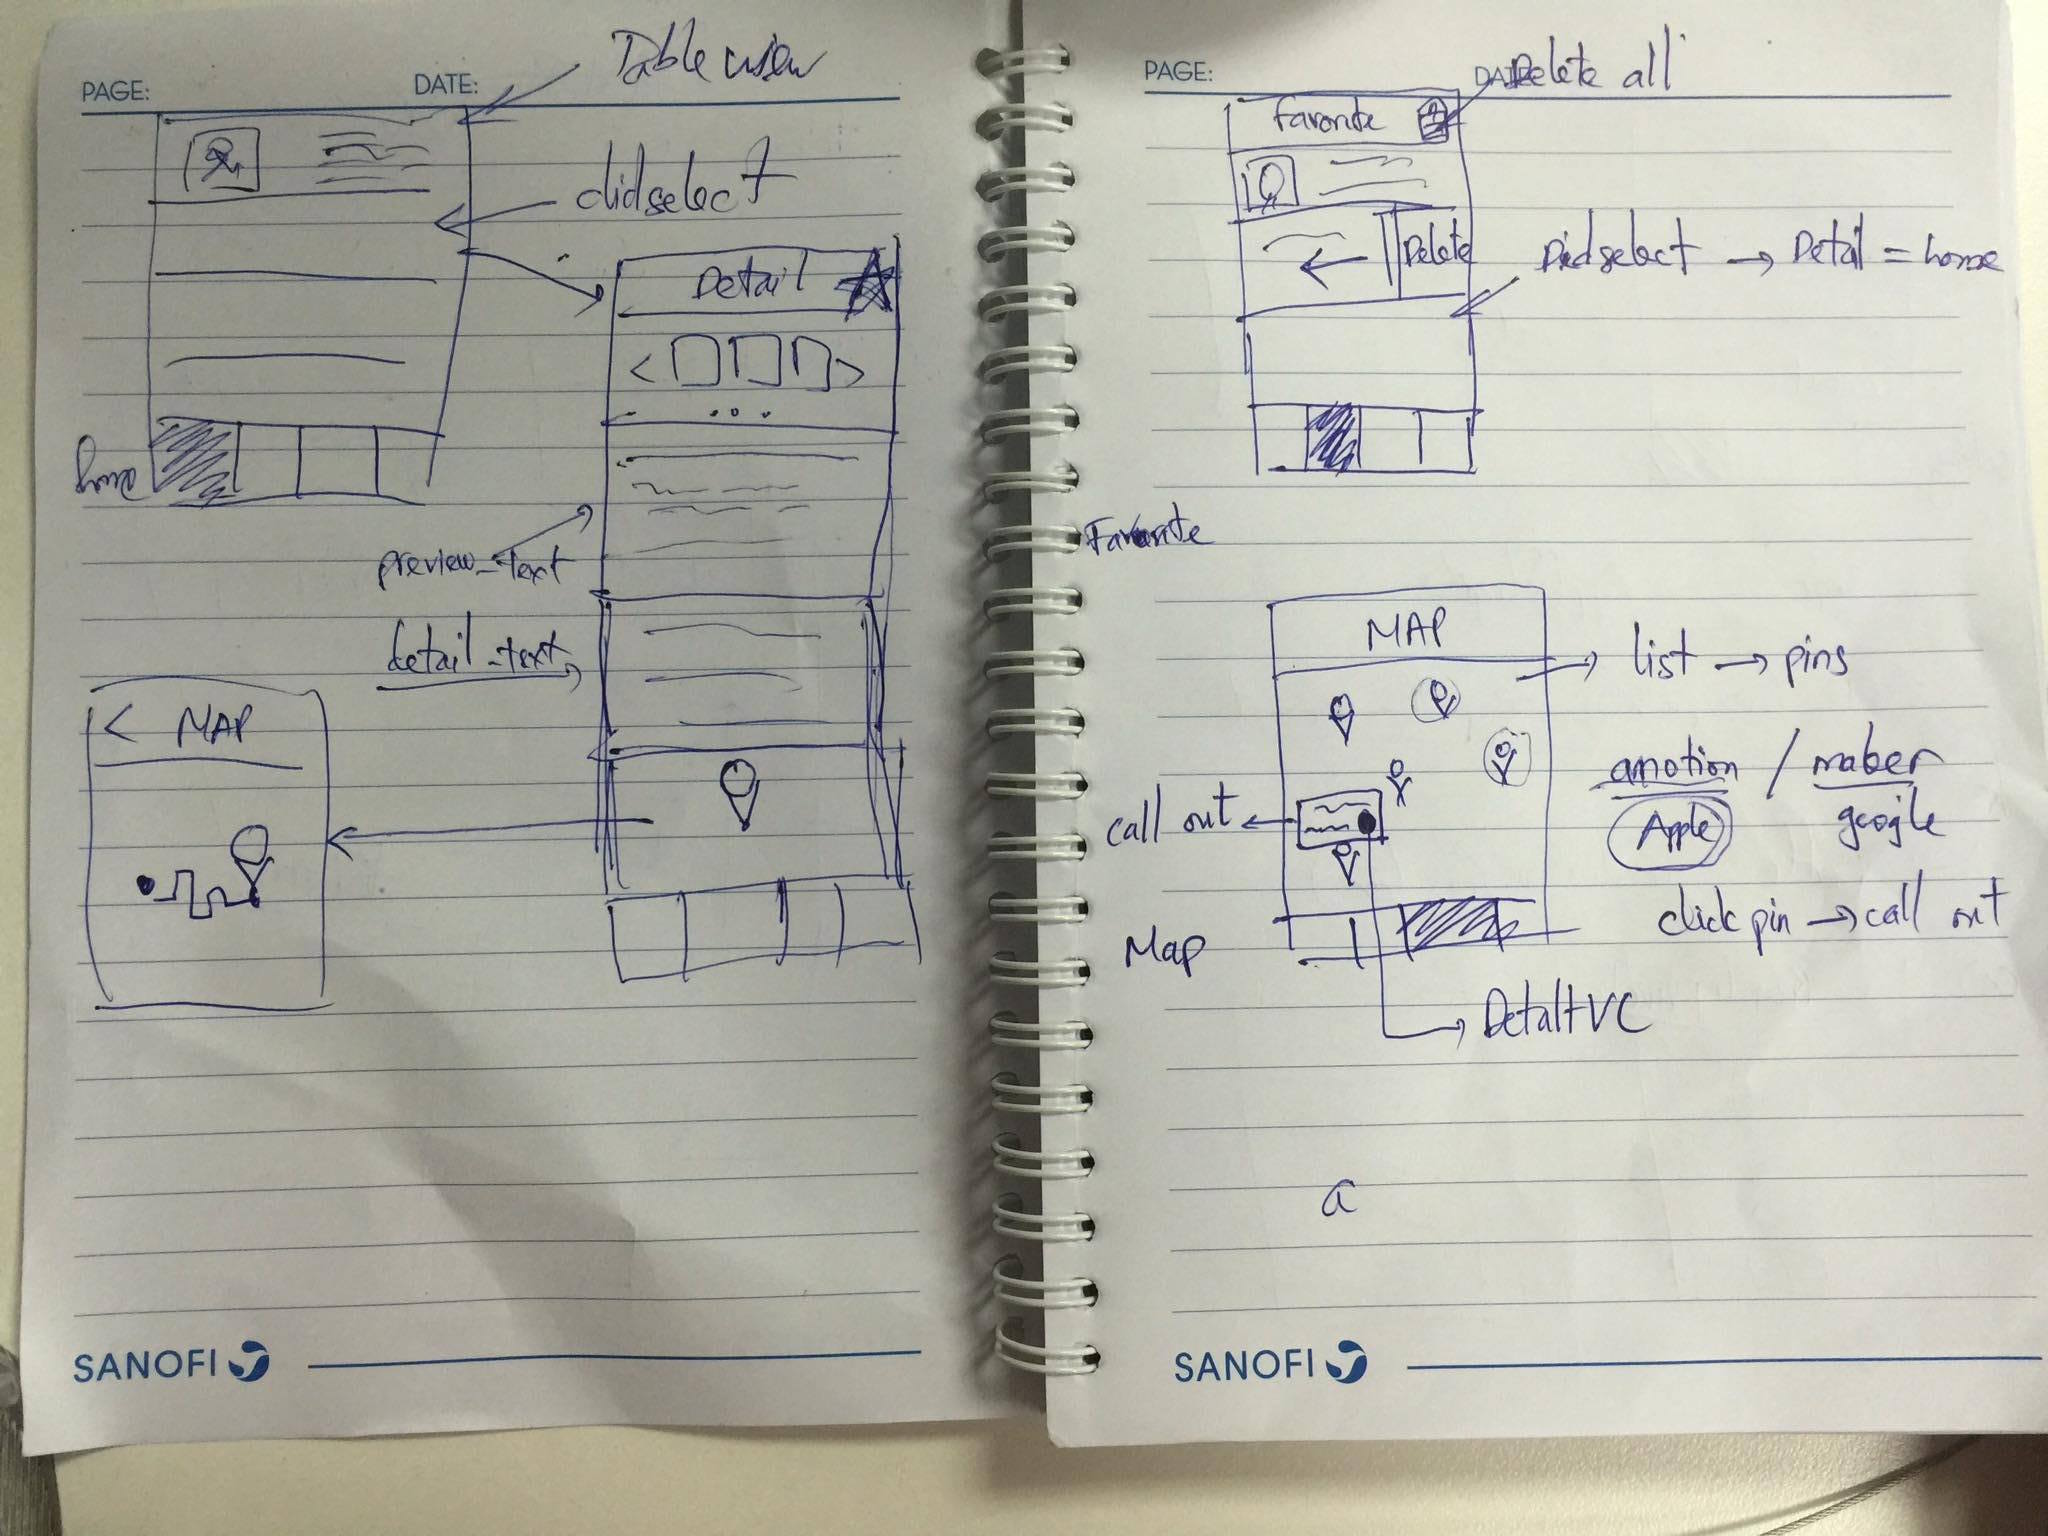 PAGE:
DATE:
Table view
didselect
Detail
home
preview_text
detail_text
< MAP
SANOFI
PAGE:
DATE:
Delete all
Favorite
Delete
Didselect → Detail = home
Favorite
MAP
list → pins
anotion / maker
Apple
google
call out
click pin → call out
Map
DetailtVC
a
SANOFI